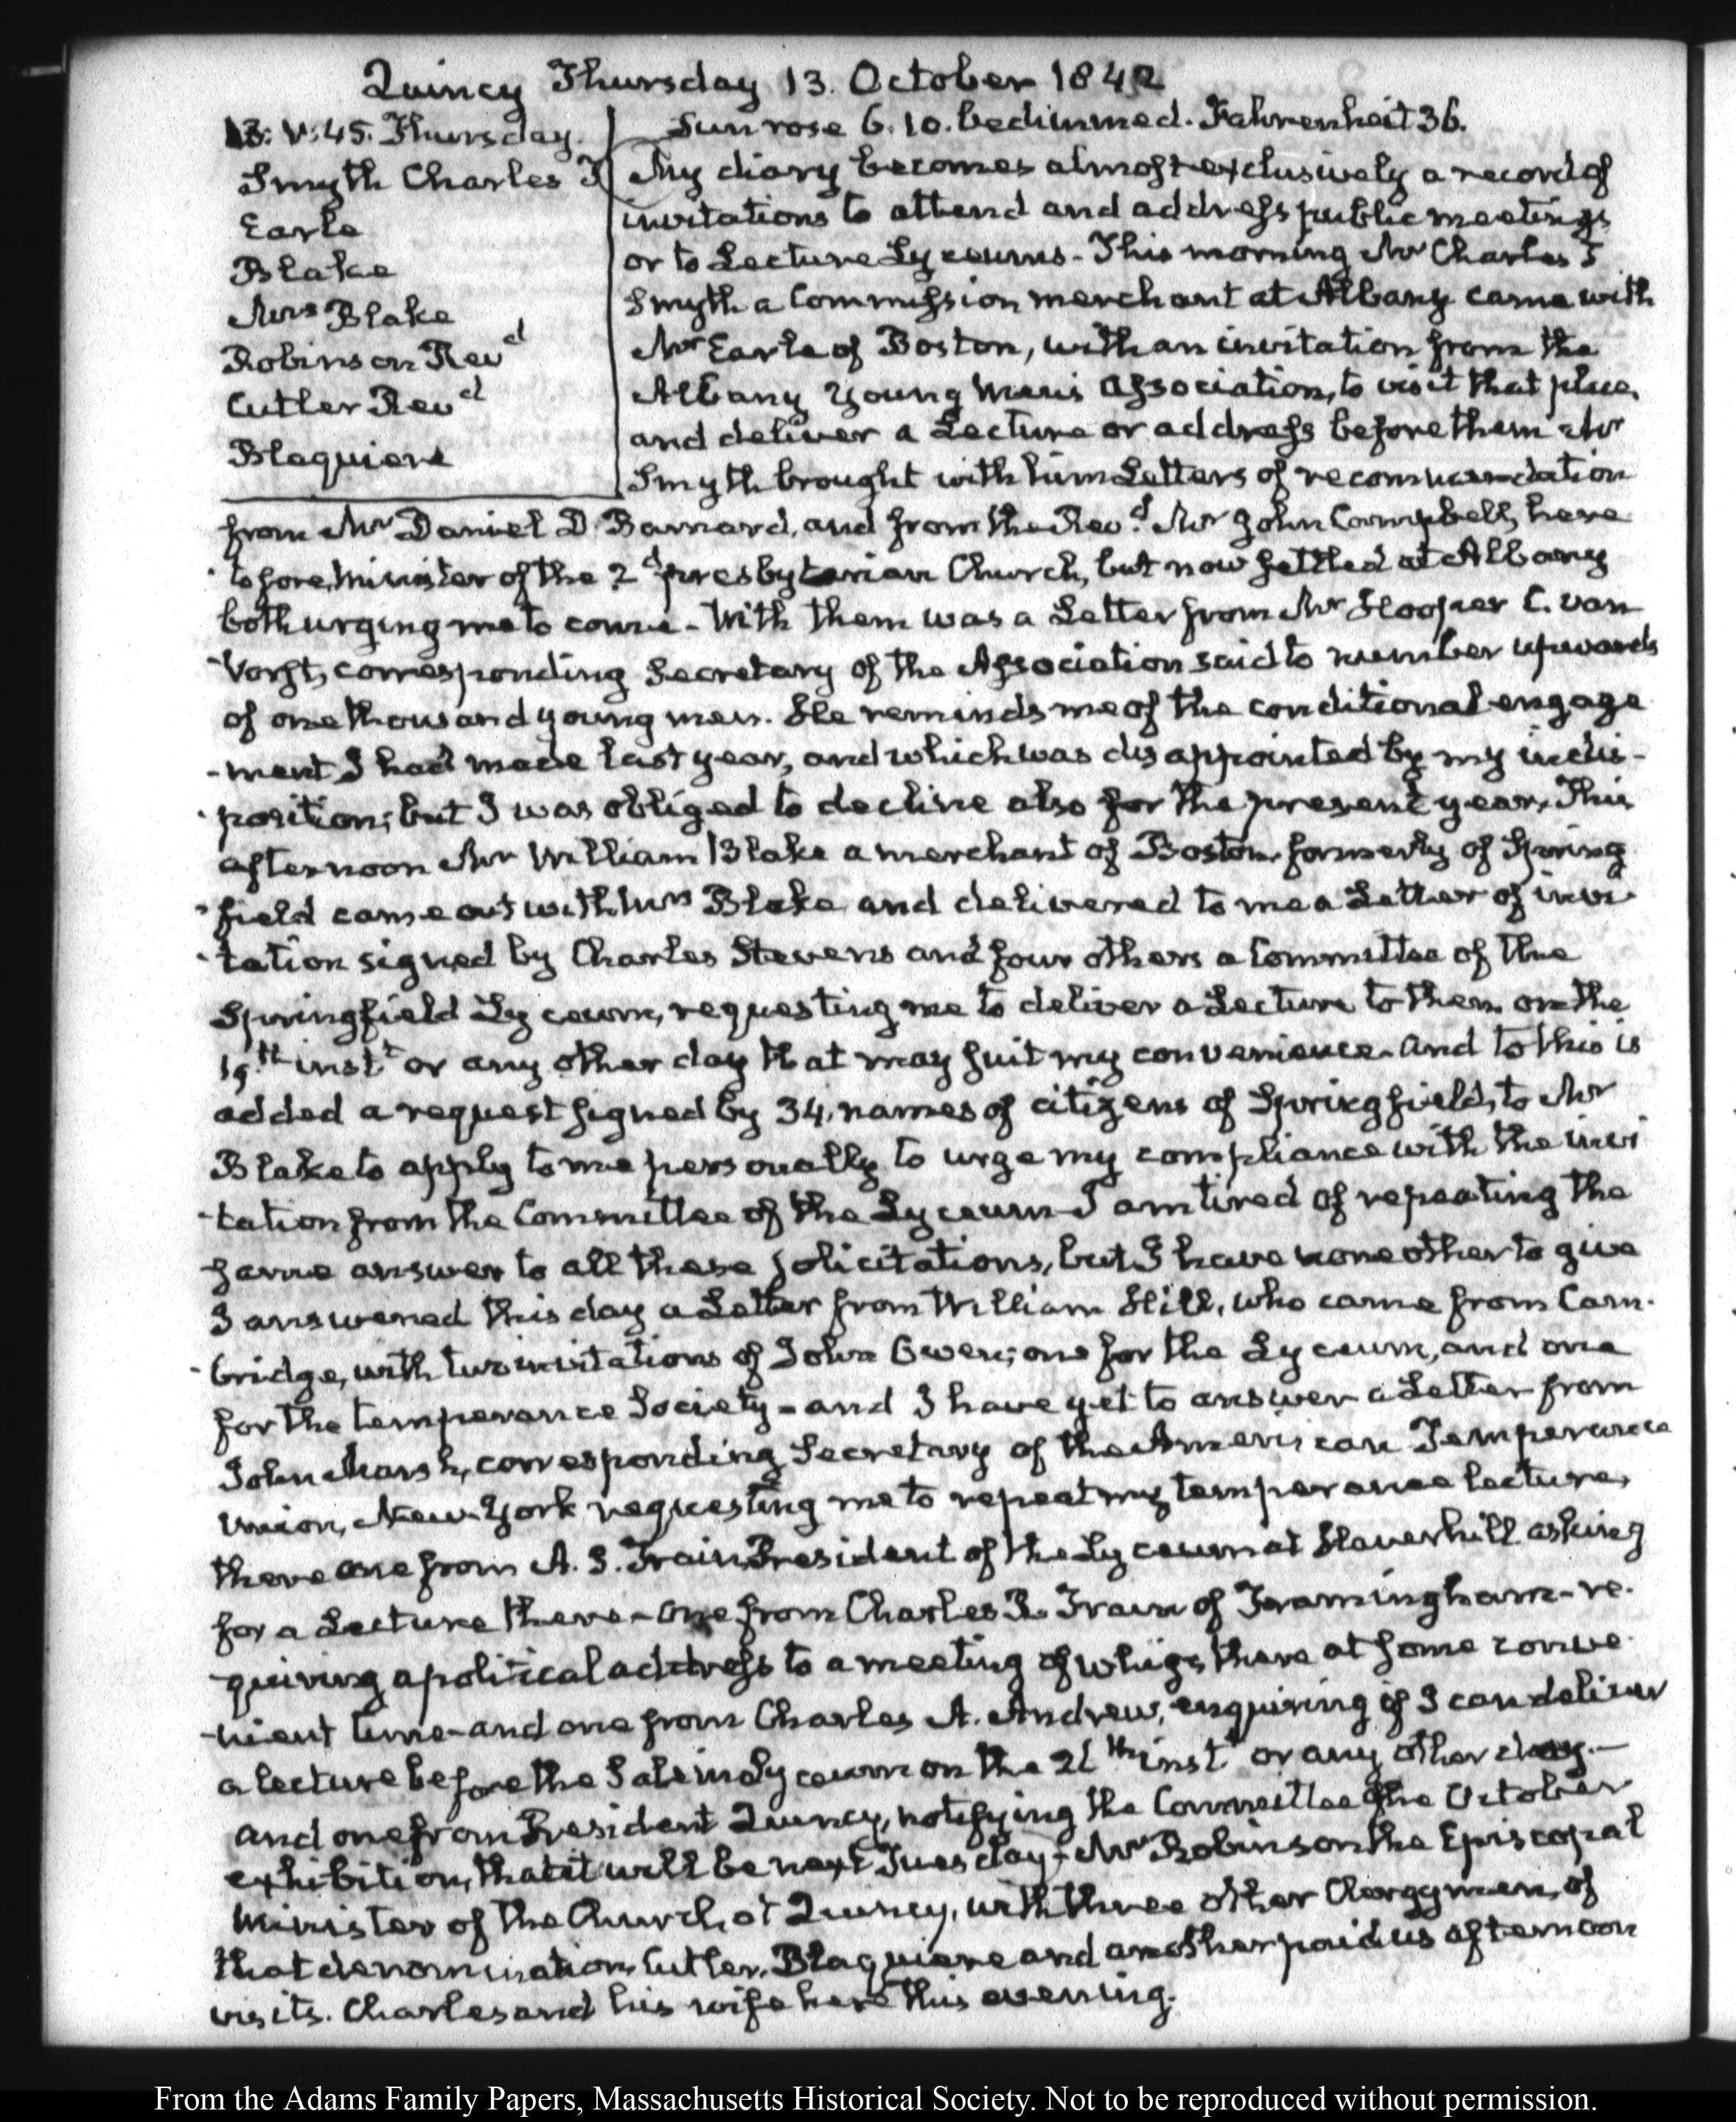 Quincy Thursday 13. October 1842
13. V.45. Thursday.
Smyth Charles T
Earle
Blake
Mrs Blake
Robinson Revd
Cutler Revd
Blaquiere
Sun rose 6.10. bedimmed. Fahrenheit 36.
My diary becomes almost exclusively a record of
invitations to attend and address public meetings
or to Lecture Lyceums - This morning Mr Charles T
Smyth a Commission merchant at Albany came with
Mr Earle of Boston, with an invitation from the
Albany Young Men's Association, to visit that place,
and deliver a Lecture or address before them Mr
Smyth brought with him Letters of recommendation
from Mr Daniel D. Barnard, and from the Revd. Mr John Campbell, here
tofore, Minister of the 2d presbyterian Church, but now settled at Albany
both urging me to come - With them was a Letter from Mr Hooper C. Van
Vorst, corresponding Secretary of the Association said to number upwards
of one thousand young men. He reminds me of the conditional engage
-ment I had made last year, and which was disappointed by my indis-
position; but I was obliged to decline also for the present year. This
afternoon Mr William Blake a merchant of Boston, formerly of Spring
field came out with Mrs Blake and delivered to me a Letter of invi-
-tation signed by Charles Stevens and four others a Committee of the
Springfield Lyceum, requesting me to deliver a Lecture to them on the
19th instt or any other day that may suit my convenience. And to this is
added a request signed by 34. names of citizens of Springfield, to Mr
Blake to apply to me personally to urge my compliance with the invi
-tation from the Committee of the Lyceum I am tired of repeating the
same answer to all these solicitations, but I have none other to give
I answered this day a Letter from William Hill, who came from Cam-
-bridge, with two invitations of John Owen; one for the Lyceum, and one
for the temperance Society - and I have yet to answer a Letter from
John Marsh, corresponding Secretary of the American Temperance
Union, New-York requesting me to repeat my temperance lecture,
there one from A. S. Train President of the Lyceum at Haverhill asking
for a Lecture there - one from Charles R. Train of Framingham - re-
quiring a political address to a meeting of whigs there at some conve-
-nient time - and one from Charles A. Andrew, enquiring if I can deliver
a lecture before the Salem Lyceum on the 26th instt or any other day. -
and one from President Quincy, notifying the Committee of the October
exhibition, that it will be next Tuesday - Mr Robinson the Episcopal
Minister of the Church, at Quincy, with three other Clergymen, of
that denomination, Cutler, Blaquiere and another paid us afternoon
visits. Charles and his wife here this evening.
From the Adams Family Papers, Massachusetts Historical Society. Not to be reproduced without permission.